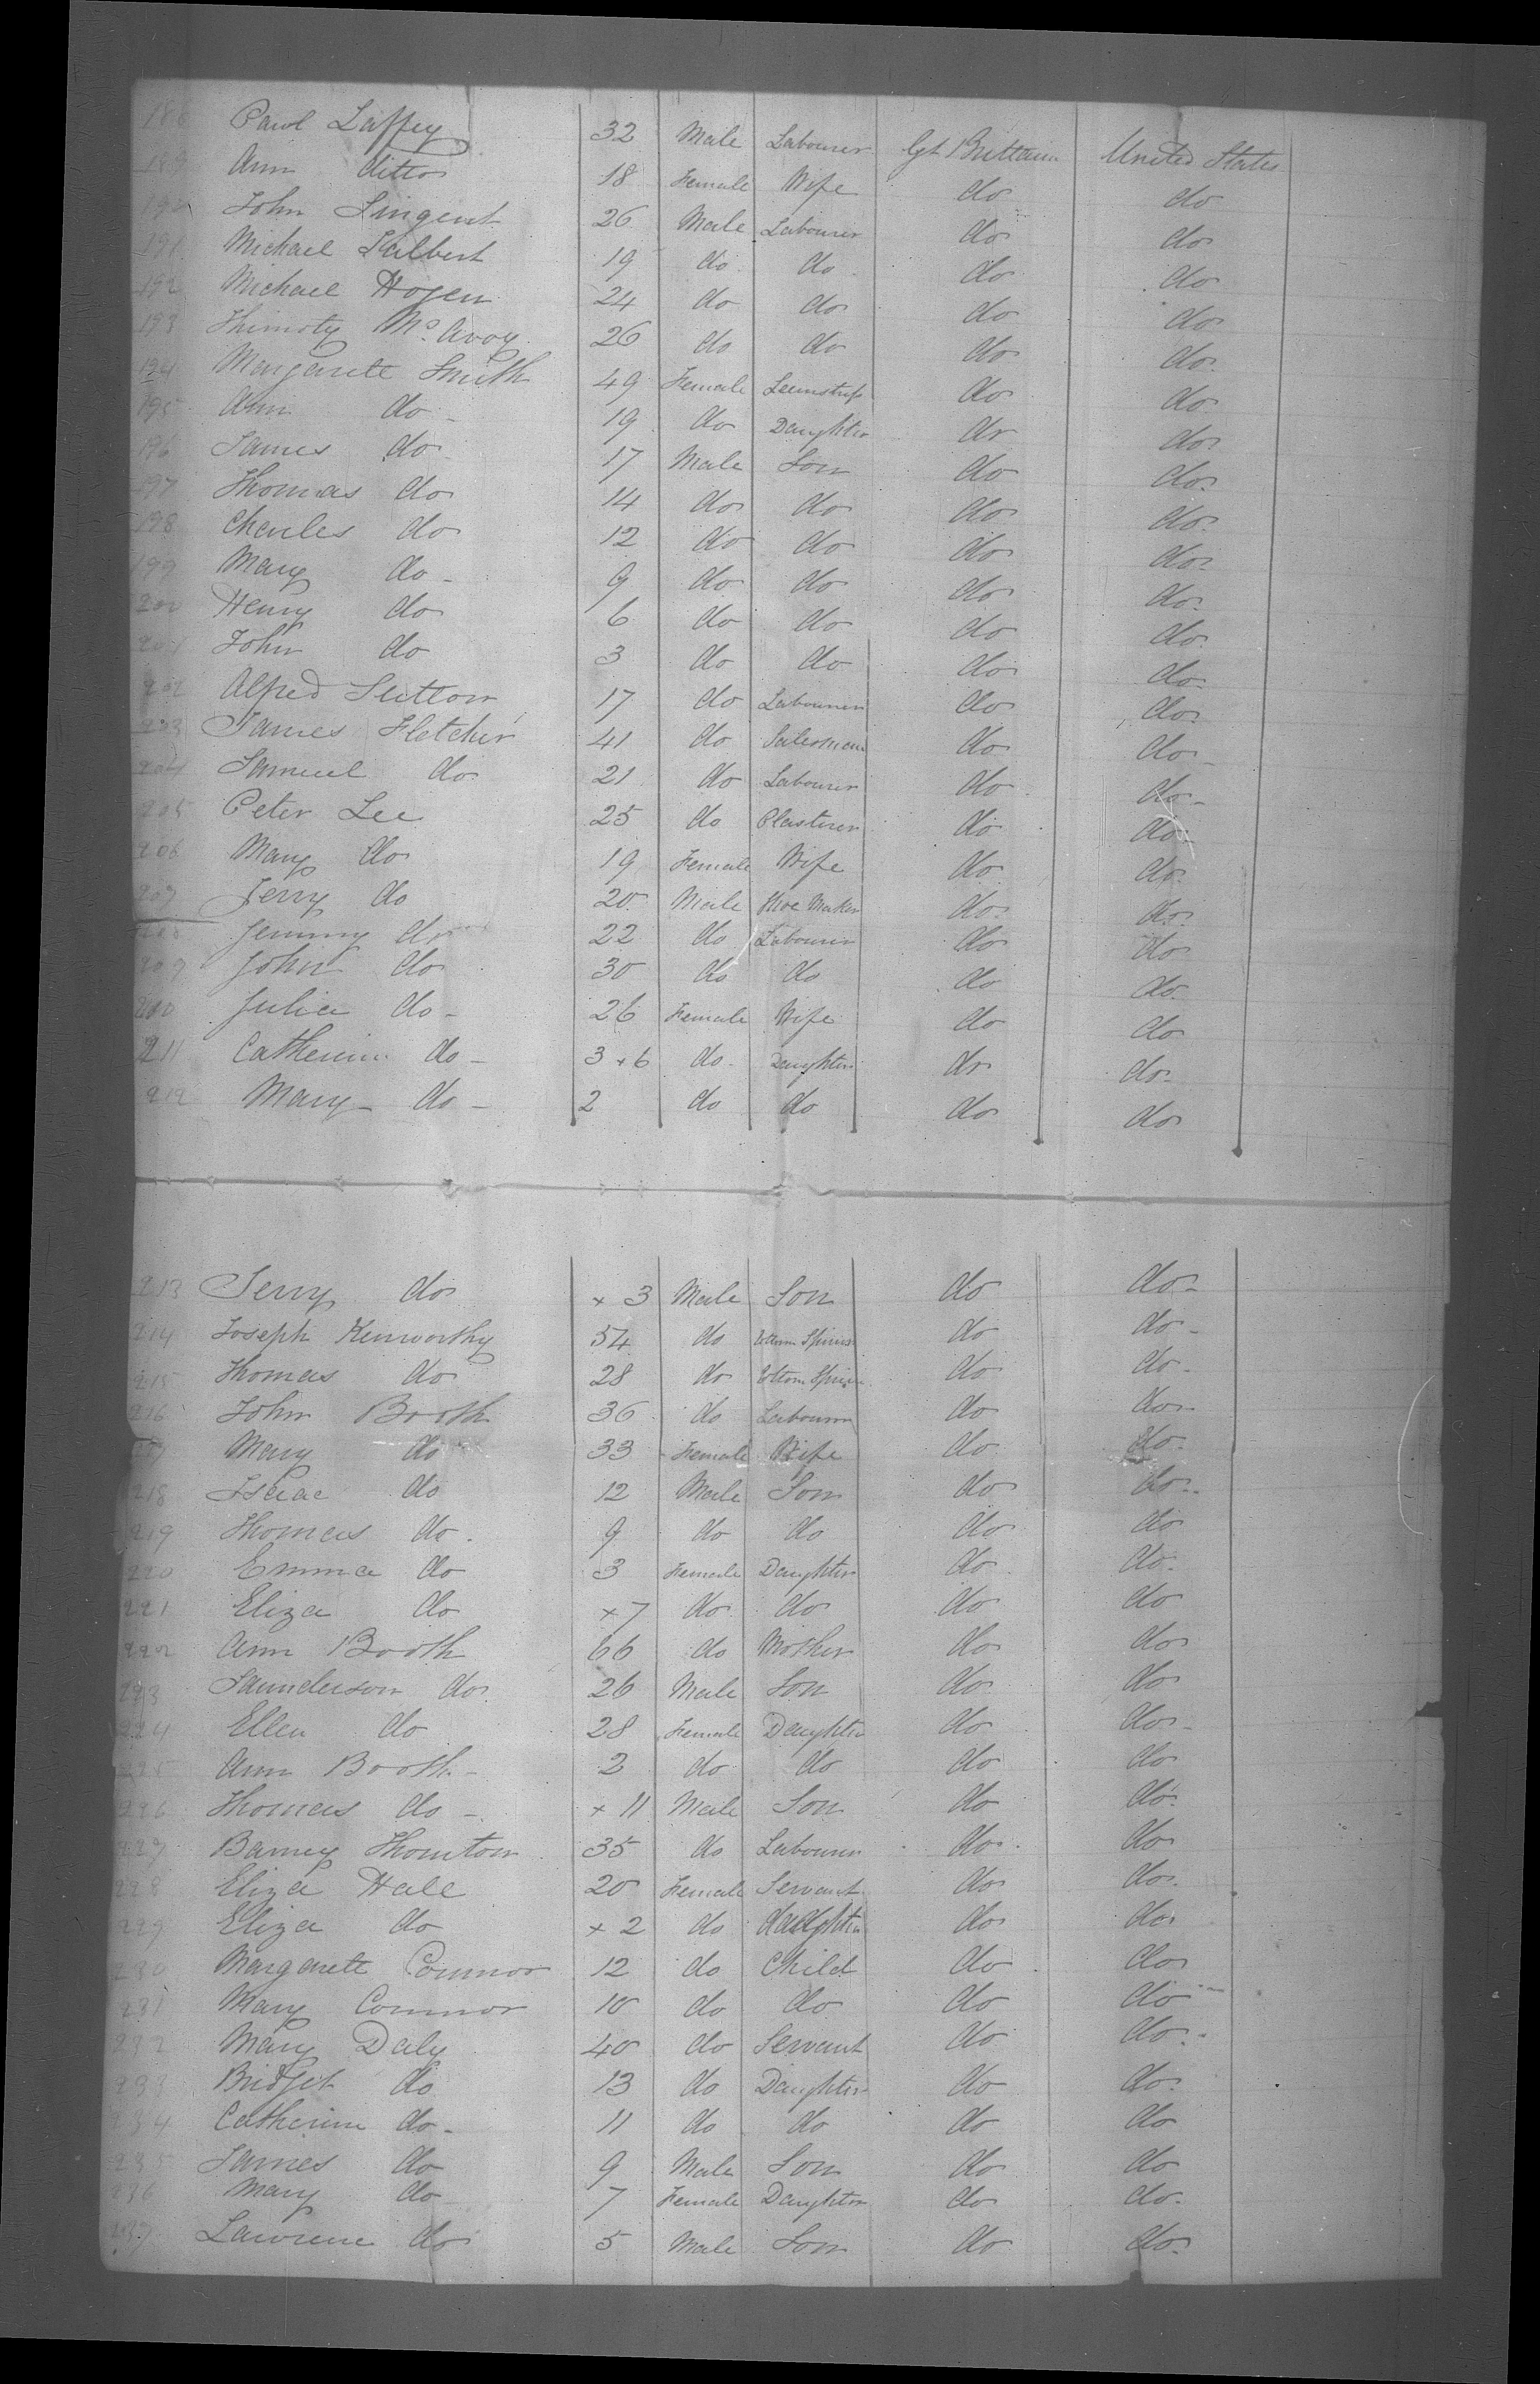 188 Paul Laffey 32 Male Labourer Gt Brittain United States
189 Ann ditto 18 Female Wife do do
190 John Singent 26 Male Labourer do do
191 Michael 19 do do do do
192 Michael Hogen 24 do do do do
193 Thimoty McAvoy 26 do do do do
194 Margarett Smith 49 Female do do
195 Ann do 19 do Daughter do do
196 James do 17 Male Son do do
197 Thomas do 14 do do do do
198 Charles do 12 do do do do
199 Mary do 9 do do do do
200 Henry do 6 do do do do
201 John do 3 do do do do
202 Alfred Sutton 17 do Labourer do do
203 James Fletcher 41 do Salesman do do
204 Samuel do 21 do Labourer do do
205 Peter Lee 25 do Plasterer do do
206 Mary do 19 Female Wife do do
207 Jerry do 20 Male Shoe Maker do do
208 Jemmy do 22 do Labourer do do
209 John do 30 do do do do
210 Julia do 26 Female Wife do do
211 Catherine do 3 + 6 do Daughter do do
212 Mary do 2 do do do do
213 Jerry do + 3 Male Son do do
214 Joseph Kenworthy 54 do Cottom Spiner do do
215 Thomas do 28 do Cottom Spiner do do
216 John Booth 36 do Labourer do do
217 Mary do 33 Female Wife do do
218 Isaac do 12 Male Son do do
219 Thomas do 9 do do do do
220 Emma do 3 Female Daughter do do
221 Eliza do + 7 do do do do
222 Ann Booth 66 do Mother do do
223 Saunderson do 26 Male Son do do
224 Ellen do 28 Female Daughter do do
225 Ann Booth 2 do do do do
226 Thomas do + 11 Male Son do do
227 Barney Thornton 35 do Labourer do do
228 Eliza Hall 20 Female Servant do do
229 Eliza do + 2 do daughter do do
230 Margarett Connor 12 do Child do do
231 Mary Connor 10 do do do do
232 Mary Daly 40 do Servant do do
233 Bridget do 13 do Daughter do do
234 Catherine do 11 do do do do
235 James do 9 Male Son do do
236 Mary do 7 Female Daughter do do
237 Lawrence do 5 Male Son do do